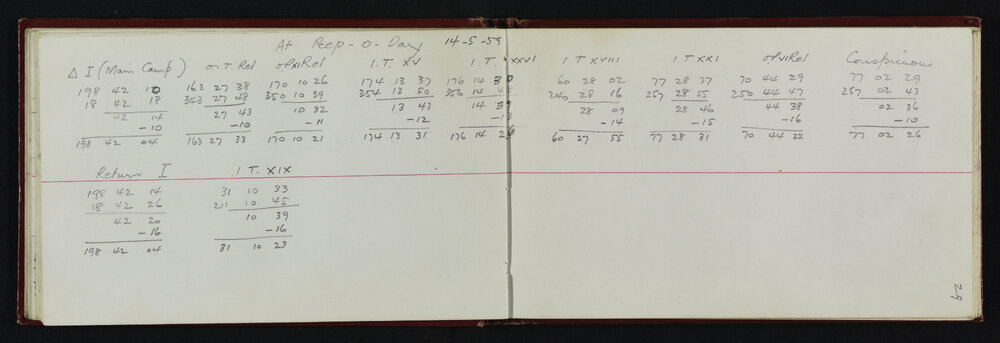 At Peep-o-Day 14-5-59
Δ I (Main Camp) o I.T. Rel o P.XI Rel I.T. XV I.T. XXVI I T XVIII I.T. XXI o P.VI Rel Conspicuous
198 42 10 163 27 38 170 10 26 174 13 37 176 14 30 60 28 02 77 28 37 70 44 29 77 02 29
18 42 18 343 27 48 350 10 39 354 13 50 356 14 48 240 28 16 257 28 55 250 44 47 257 02 43
42 14 27 43 10 32 13 43 14 39 28 09 28 46 44 38 02 36
-10 -10 -11 -12 -13 -14 -15 -16 -10
198 42 04 163 27 33 170 10 21 174 13 31 176 14 26 60 27 55 77 28 31 70 44 22 77 02 26
Return I I T. XIX
198 42 14 31 10 33
18 42 26 211 10 45
42 20 10 39
-16 -16
198 42 04 31 10 23
62